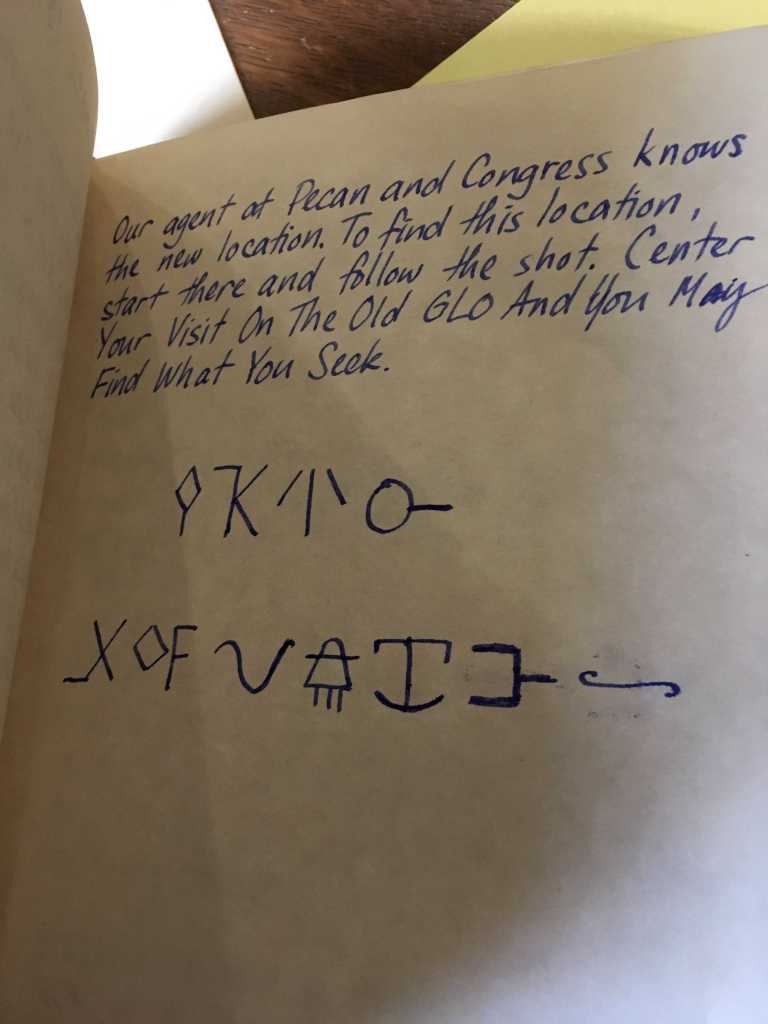 Our agent at Pecan and Congress knows
the new location. To find this location,
start there and follow the shot. Center
Your Visit On The Old GLO And You May
Find What You Seek.